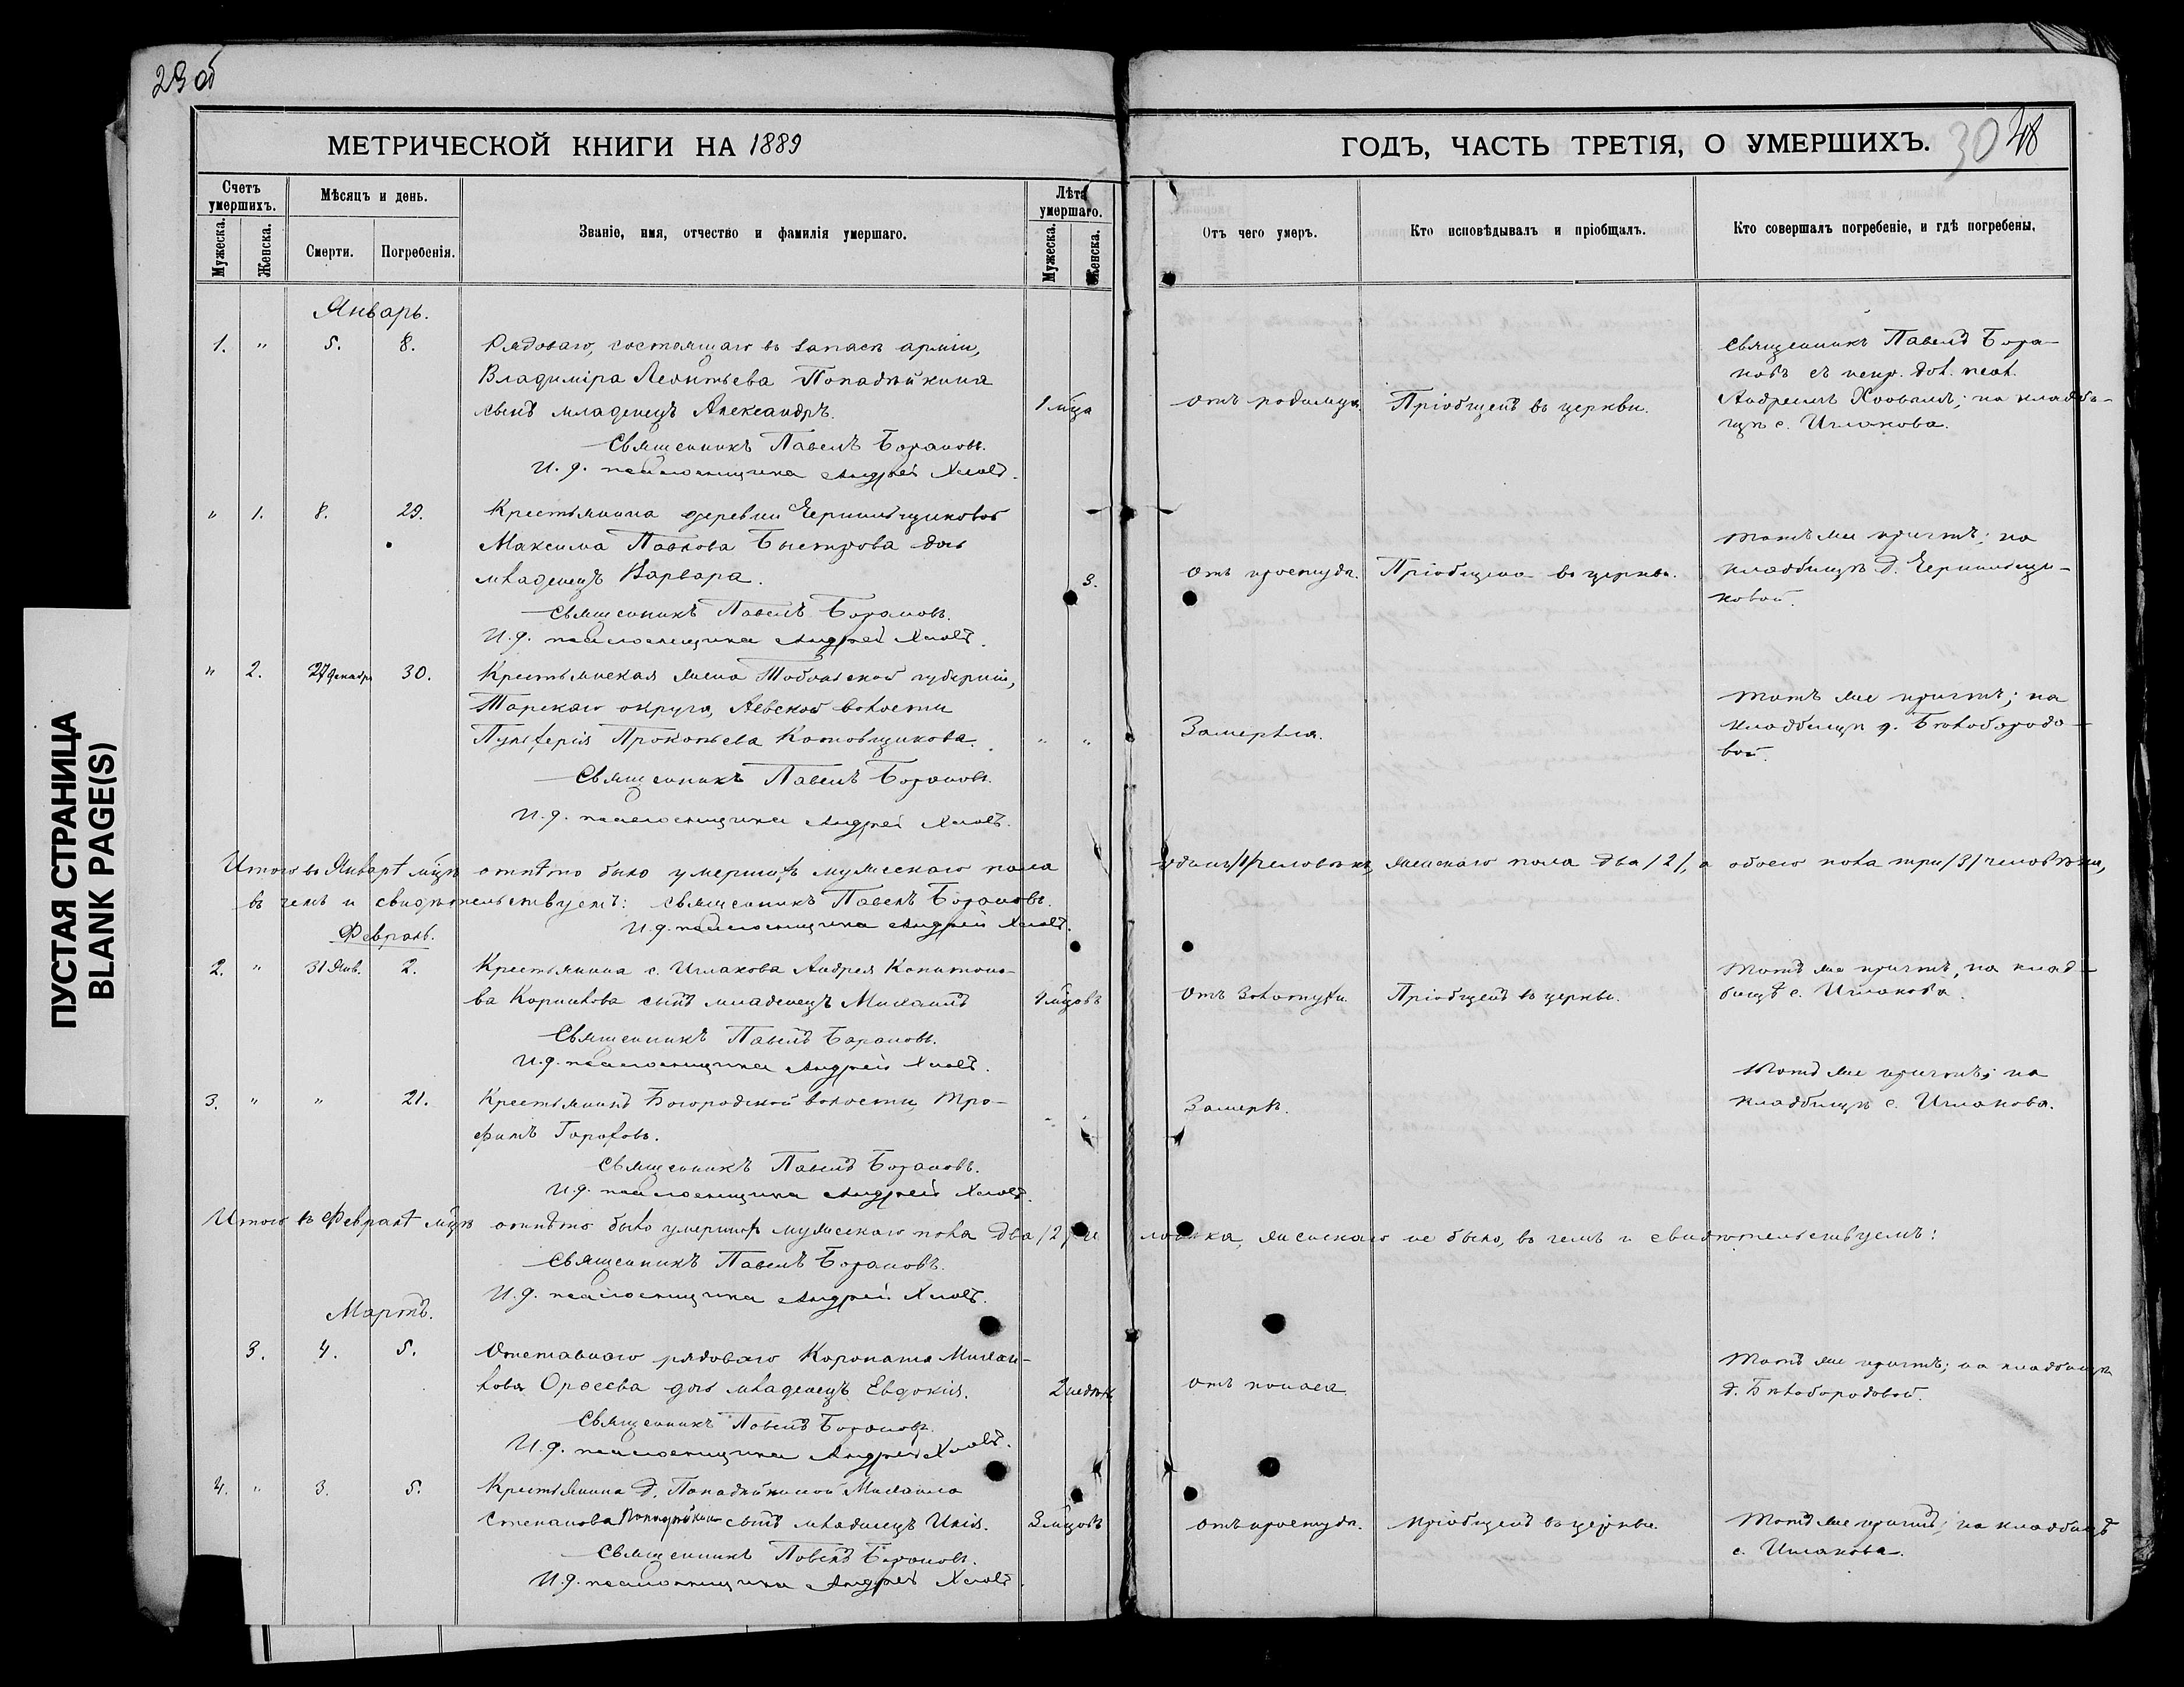 29 об
МЕТРИЧЕСКОЙ КНИГИ НА 1889
ГОДЪ, ЧАСТЬ ТРЕТІЯ, О УМЕРШИХЪ.
30
48
Счетъ умершихъ.
Мужеска.
Женска.
Мѣсяцъ и день.
Смерти.
Погребенія.
Званіе, имя, отчество и фамилія умершаго.
Лѣта умершаго.
Мужеска.
Женска.
Отъ чего умеръ.
Кто исповѣдывалъ и пріобщалъ.
Кто совершалъ погребеніе, и гдѣ погребены.
Январь.
1. " 5. 8.
Рядоваго, состоящаго въ запасѣ арміи,
Владиміра Леонтьева Попадѣйкина
сынъ младенецъ Александръ.
1 мца
отъ родимца.
Пріобщенъ въ церкви.
Священникъ Павелъ Бара-
новъ съ
Андреемъ на кладби-
щѣ с.
Священникъ Павелъ Барановъ.
И. д. псаломщика Андрей
" 1. 8. 29.
Крестьянина деревни Чернильщиковой
Максима Павлова Быстрова дочь
младенецъ Варвара.
3.
отъ простуды.
Пріобщена въ церкви.
Тотъ же причтъ; на
кладбищѣ д. Чернильщи-
ковой.
Священникъ Павелъ Барановъ.
И. д. псаломщика Андрей
" 2. 27 декабр 30.
Крестьянская жена Тобольской губерніи,
Тарскаго округа, Аевской волости
Прокопьева Котовщикова.
" "
Замерзла.
Тотъ же причтъ; на
кладбищѣ д. Бѣлобородо-
вой.
Священникъ Павелъ Барановъ.
И. д. псаломщика Андрей
Итого въ Январѣ мцѣ отпѣто было умершихъ мужескаго пола
одинъ /1/ человѣкъ, женскаго пола два /2/, а обоего пола три /3/ человѣка,
въ чемъ и свидѣтельствуемъ: священникъ Павелъ Барановъ.
И. д. псаломщика Андрей
Февраль.
2. " 31 Янв. 2.
Крестьянина с. Андрея Капитоно-
ва сынъ младенецъ Михаилъ
мцовъ
отъ золотухи
Пріобщенъ въ церкви.
Тотъ же причтъ, на клад-
бищѣ с.
Священникъ Павелъ Барановъ.
И. д. псаломщика Андрей
3. " " 21.
Крестьянинъ Богородской волости Тро-
фимъ Гороховъ.
Замерзъ.
Тотъ же причтъ; на
кладбищѣ с.
Священникъ Павелъ Барановъ.
И. д. псаломщика Андрей
Итого въ Февралѣ мцѣ отпѣто было умершихъ мужескаго пола два /2/ че
ловѣка, женскаго не было, въ чемъ и свидѣтельствуемъ:
Священникъ Павелъ Барановъ.
И. д. псаломщика Андрей
Мартъ.
3. 4. 5.
Отставнаго рядоваго Михай-
лова дочь младенецъ Евдокія.
2 недѣль
отъ поноса
Тотъ же причтъ; на кладбищѣ
д. Бѣлобородовой.
Священникъ Павелъ Барановъ.
И. д. псаломщика Андрей
4. " 3. 5.
Крестьянина д. Попадѣйкиной Михаила
Степанова Попадѣйкина сынъ младенецъ
3 мцовъ
отъ простуды.
Пріобщенъ въ церкви.
Тотъ же причтъ; на кладбищѣ
с.
Священникъ Павелъ Барановъ.
И. д. псаломщика Андрей
ПУСТАЯ СТРАНИЦА
BLANK PAGE(S)